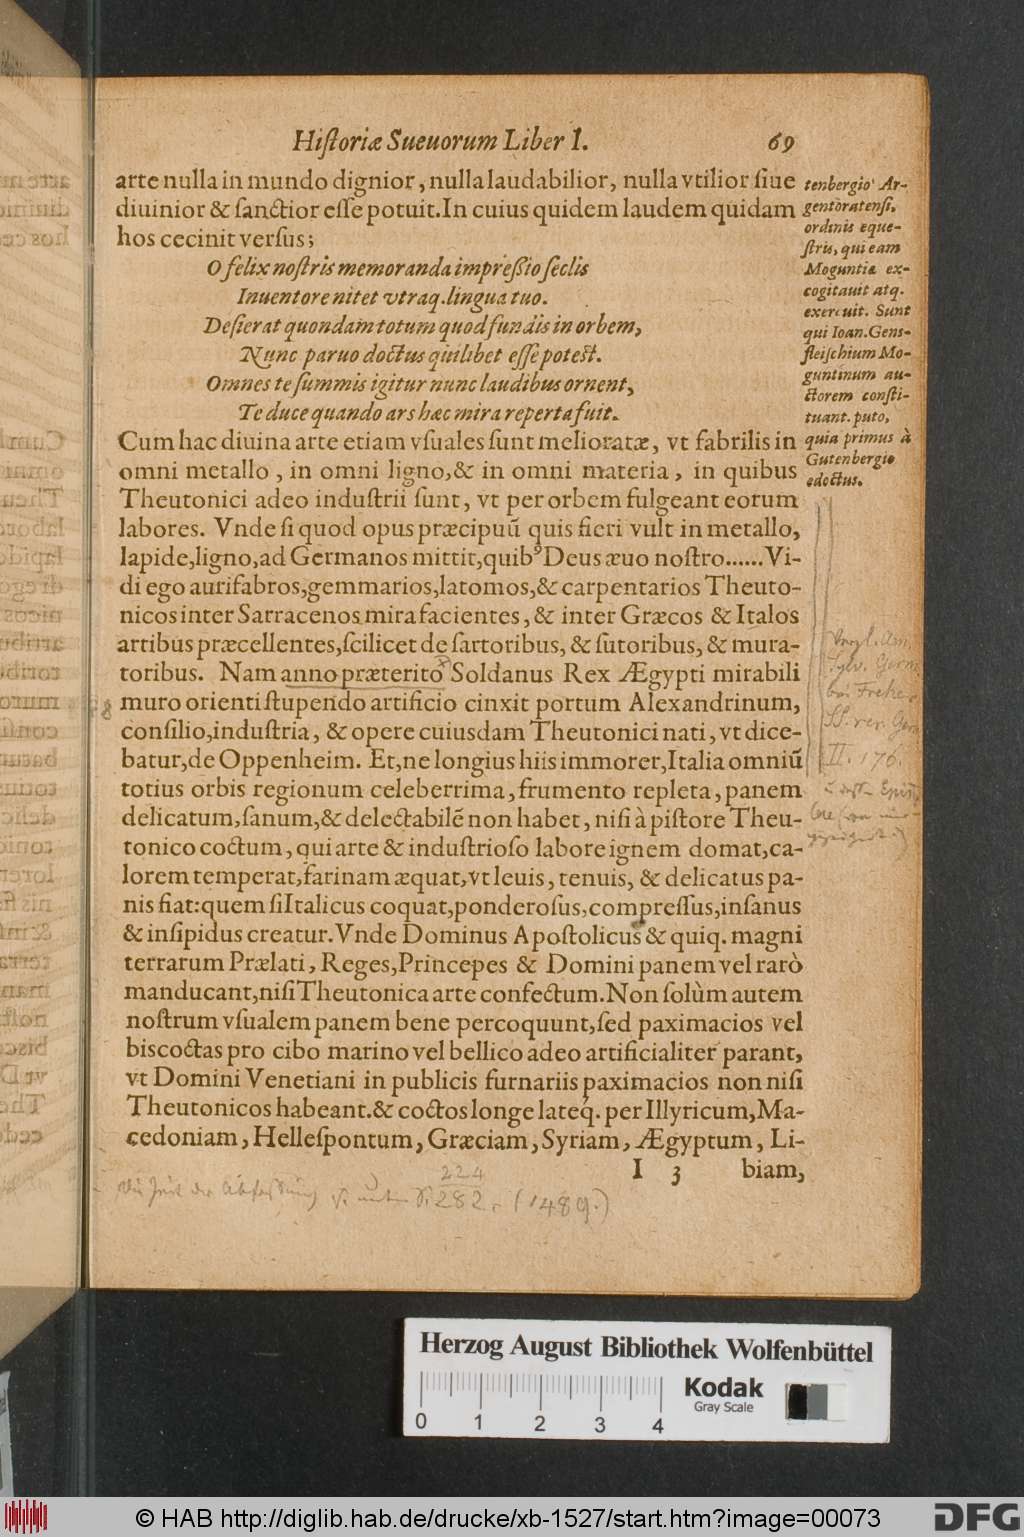 Historiæ Sueuorum Liber I. 69
arte nulla in mundo dignior, nulla laudabilior, nulla vtilior ſiue
diuinior & ſanctior eſſe potuit. In cuius quidem laudem quidam
hos cecinit verſus;
O felix noſtris memoranda impreßio ſeclis
Inuentore nitet vtraq. lingua tuo.
Deſierat quondam totum quod fundis in orbem,
Nunc paruo doctus quilibet eſſe poteſt.
Omnes te ſummis igitur nunc laudibus ornent,
Te duce quando ars hæc mira reperta fuit.
Cum hac diuina arte etiam vſuales ſunt melioratæ, vt fabrilis in
omni metallo, in omni ligno, & in omni materia, in quibus
Theutonici adeo induſtrii ſunt, vt per orbem fulgeant eorum
labores. Vnde ſi quod opus præcipuũ quis fieri vult in metallo,
lapide, ligno, ad Germanos mittit, quibꝰ Deus æuo noſtro...... Vi-
di ego aurifabros, gemmarios, latomos, & carpentarios Theuto-
nicos inter Sarracenos mira facientes, & inter Græcos & Italos
artibus præcellentes, ſcilicet de ſartoribus, & ſutoribus, & mura-
toribus. Nam anno præterito Soldanus Rex Ægypti mirabili
muro orienti ſtupendo artificio cinxit portum Alexandrinum,
conſilio, induſtria, & opere cuiusdam Theutonici nati, vt dice-
batur, de Oppenheim. Et, ne longius hiis immorer, Italia omniũ
totius orbis regionum celeberrima, frumento repleta, panem
delicatum, ſanum, & delectabilẽ non habet, niſi à piſtore Theu-
tonico coctum, qui arte & induſtrioſo labore ignem domat, ca-
lorem temperat, farinam æquat, vt leuis, tenuis, & delicatus pa-
nis fiat: quem ſi Italicus coquat, ponderoſus, compreſſus, inſanus
& inſipidus creatur. Vnde Dominus Apoſtolicus & quiq. magni
terrarum Prælati, Reges, Princepes & Domini panem vel rarò
manducant, niſi Theutonica arte confectum. Non ſolùm autem
noſtrum vſualem panem bene percoquunt, ſed paximacios vel
biscoctas pro cibo marino vel bellico adeo artificialiter parant,
vt Domini Venetiani in publicis furnariis paximacios non niſi
Theutonicos habeant. & coctos longe lateq́. per Illyricum, Ma-
cedoniam, Helleſpontum, Græciam, Syriam, Ægyptum, Li-
I 3 biam,
tenbergio Ar-
gentoratenſi,
ordinis eque-
ſtris, qui eam
Moguntiæ ex-
cogitauit atq.
exercuit. Sunt
qui Ioan. Gens-
fleiſchium Mo-
guntinum au-
ctorem conſti-
tuant. puto,
quia primus à
Gutenbergio
edoctus.
Vergl. Aen.
Sylv. Germ.
bei Freher
SS. rer. Ger
II. 176.
224
282. (1489.)
Herzog August Bibliothek Wolfenbüttel
0 1 2 3 4
Kodak
Gray Scale
© HAB http://diglib.hab.de/drucke/xb-1527/start.htm?image=00073
DFG